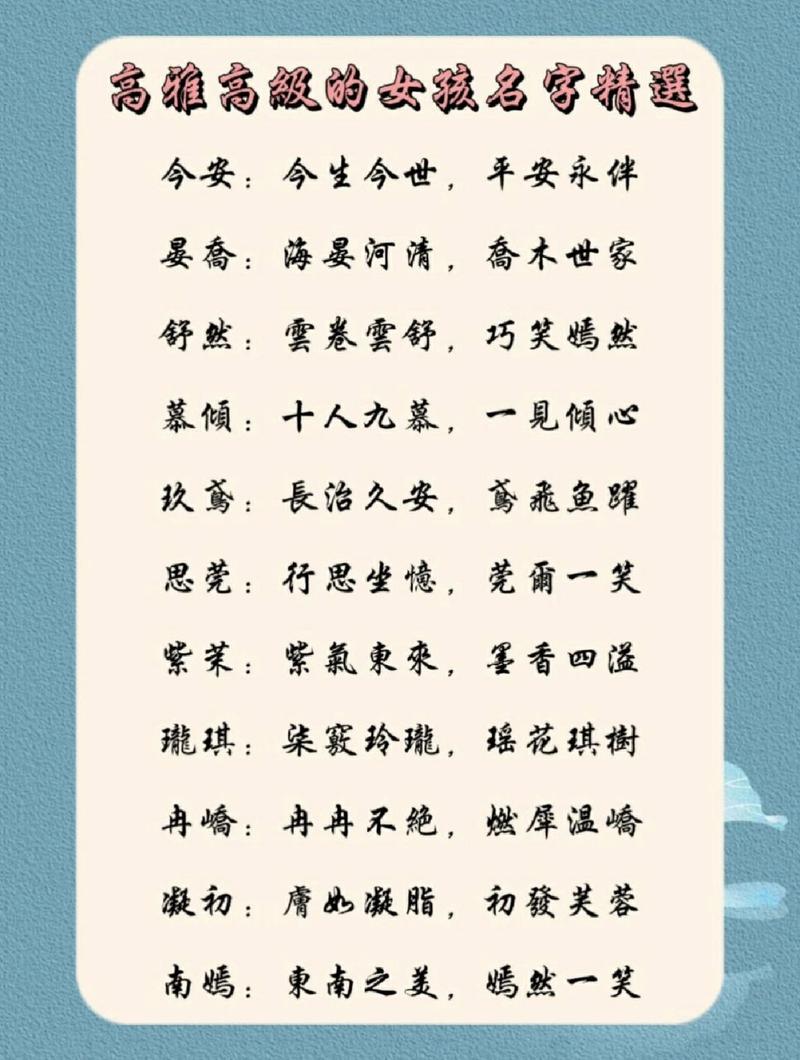 高雅高級的女孩名字精選
今安：今生今世，平安永伴
晏喬：海晏河清，喬木世家
舒然：雲卷雲舒，巧笑嫣然
慕傾：十人九慕，一見傾心
玖鳶：長治久安，鳶飛魚躍
思莞：行思坐憶，莞爾一笑
紫茉：紫氣東來，墨香四溢
瓏琪：柒竅玲瓏，瑶花琪樹
冉嶠：冉冉不絶，燃犀温嶠
凝初：膚如凝脂，初發芙蓉
南嫣：東南之美，嫣然一笑